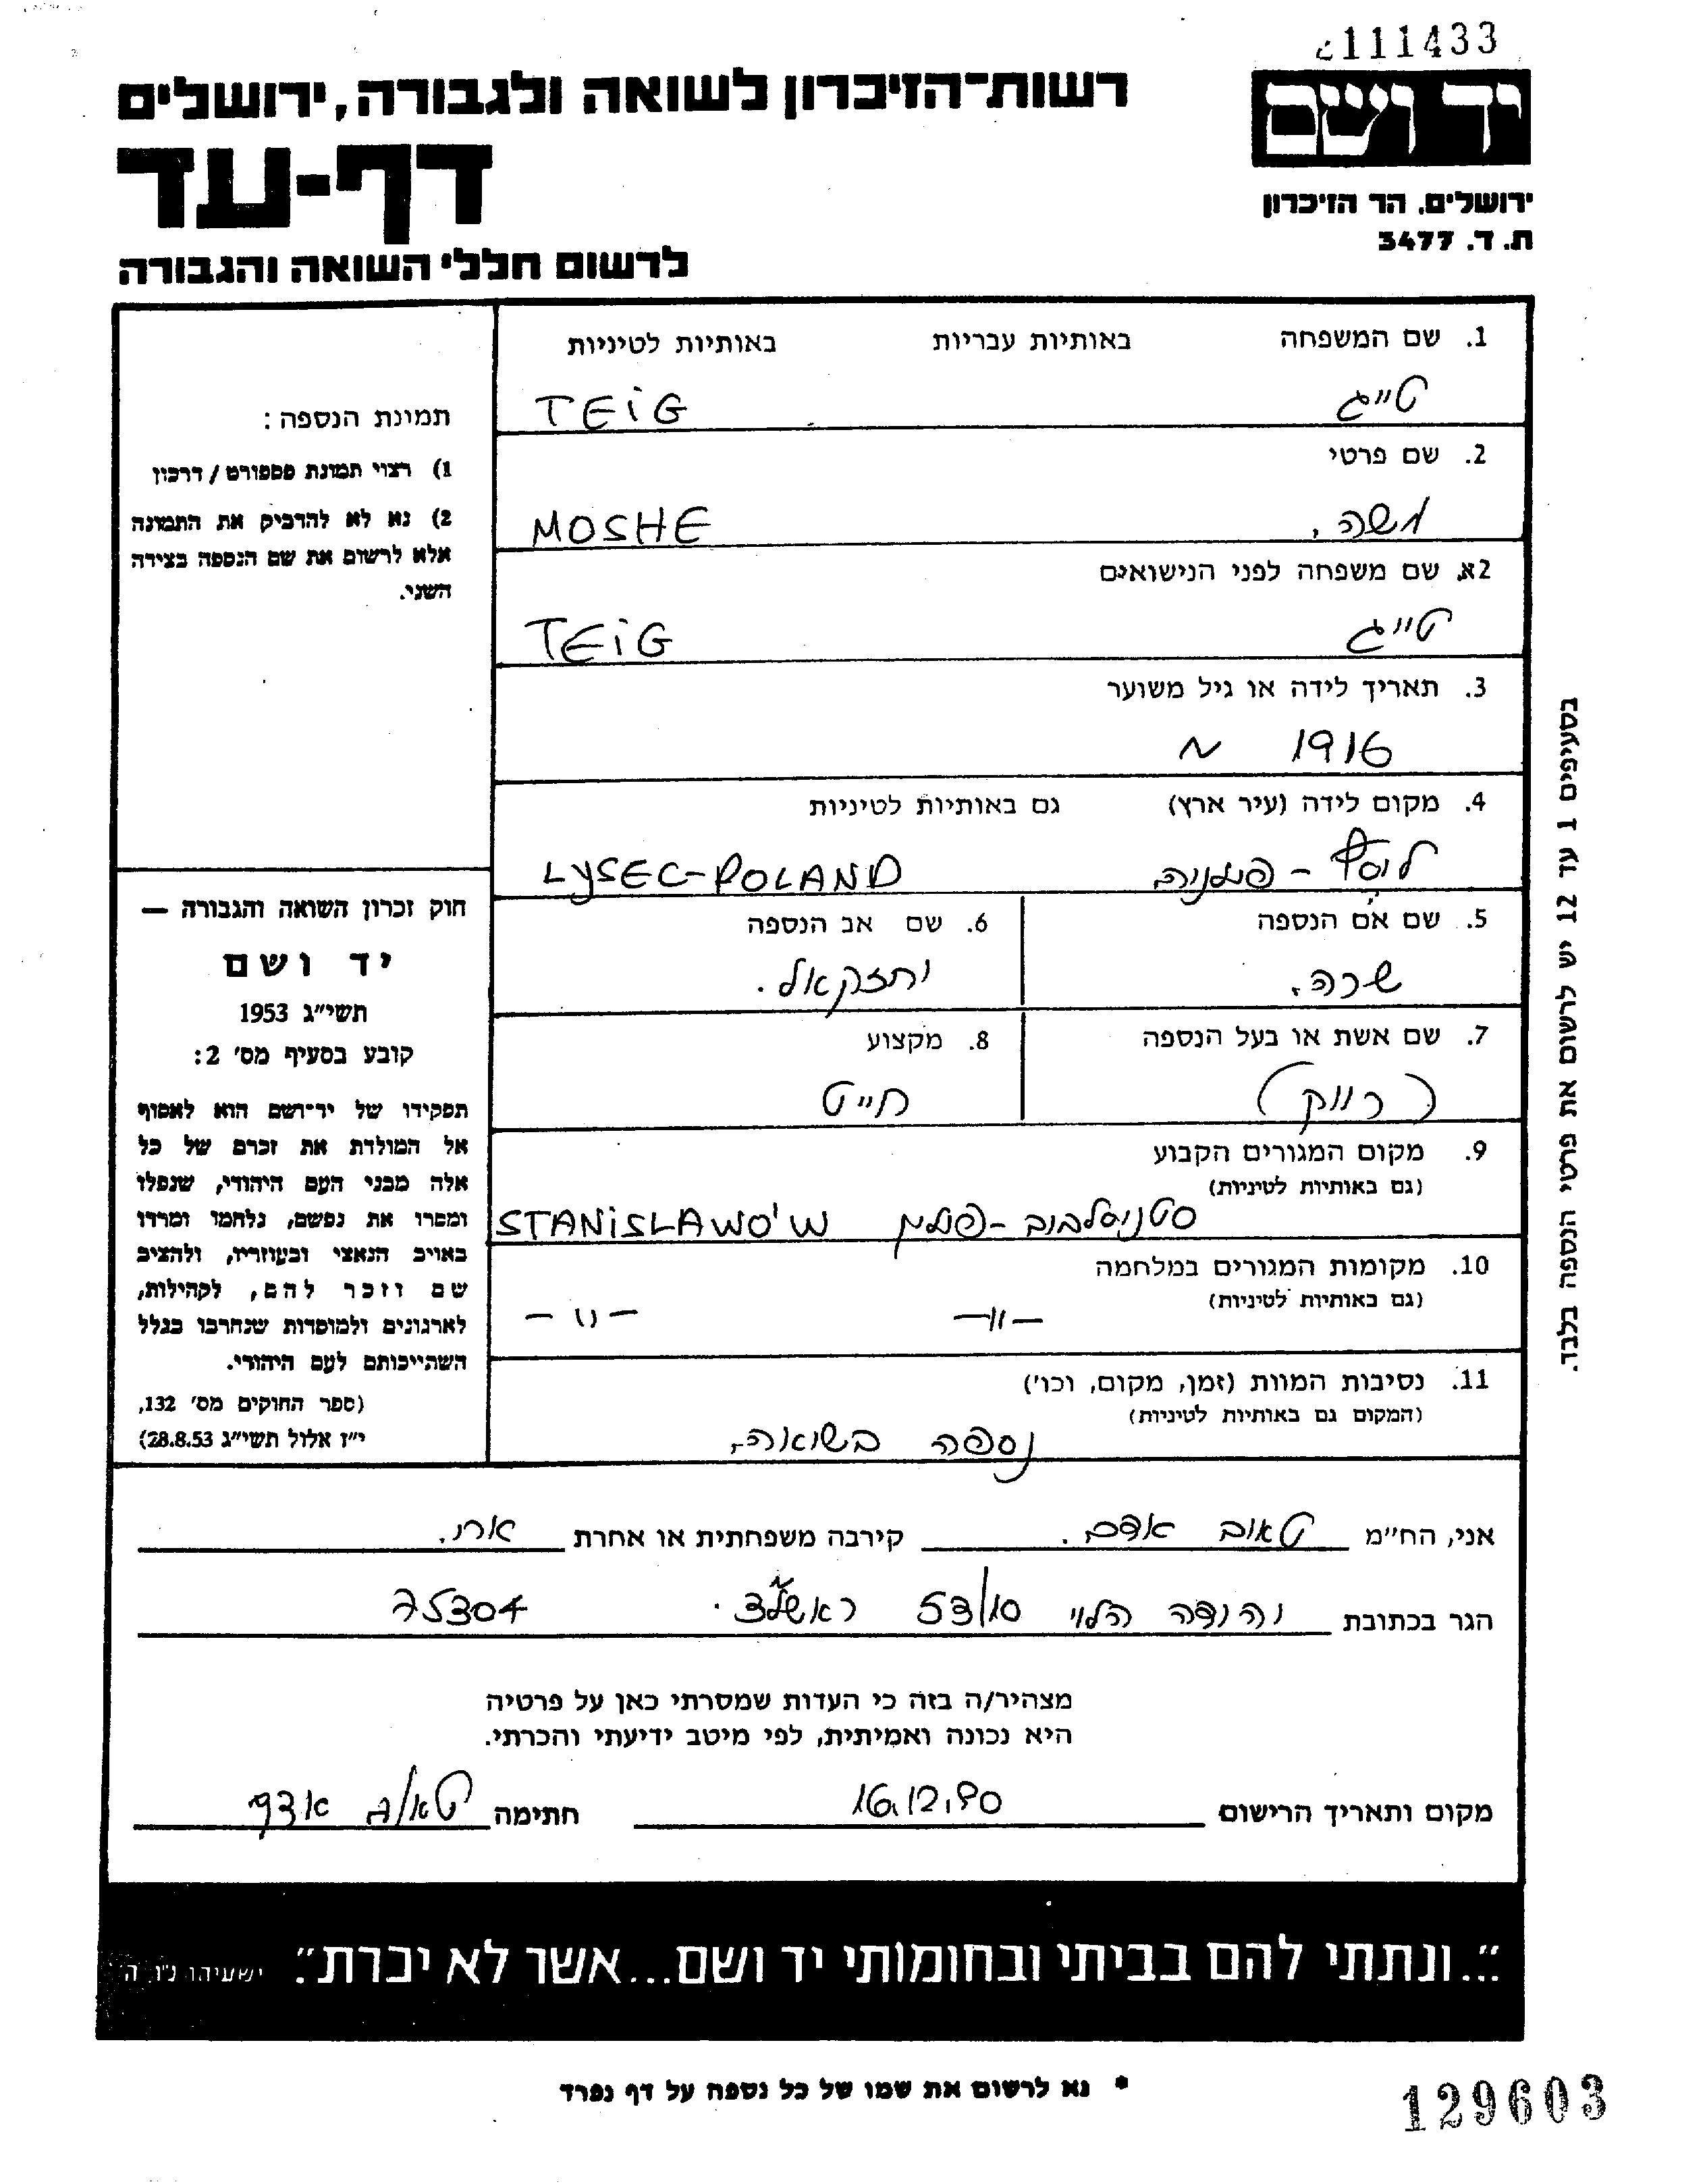 111433
רשות-הזיכרון לשואה ולגבורה, ירושלים
יד ושם
דף-עד
ירושלים. הר הזיכרון
ת. ד. 3477
לרשום חללי השואה והגבורה
1. שם המשפחה באותיות עבריות באותיות לטיניות
טייג TEIG
2. שם פרטי
משה. MOSHE
2א. שם משפחה לפני הנישואים
טייג TEIG
3. תאריך לידה או גיל משוער
1916 ~
4. מקום לידה (עיר ארץ) גם באותיות לטיניות
פולניה LYSEC-POLAND
5. שם אם הנספה 6. שם אב הנספה
שרה. יחזקאל.
7. שם אשת או בעל הנספה 8. מקצוע
(רווק) חייט
9. מקום המגורים הקבוע
(גם באותיות לטיניות)
סטניסלבוב-פולין STANISLAWO'W
10. מקומות המגורים במלחמה
(גם באותיות לטיניות)
-"- -"-
11. נסיבות המוות (זמן, מקום, וכו')
(המקום גם באותיות לטיניות)
נספה בשואה.
תמונת הנספה:
1) רצוי תמונת פספורט / דרכון
2) נא לא להדביק את התמונה
אלא לרשום את שם הנספה בצידה
השני.
חוק זכרון השואה והגבורה —
יד ושם
תשי"ג 1953
קובע בסעיף מס' 2:
תפקידו של יד-ושם הוא לאסוף
אל המולדת את זכרם של כל
אלה מבני העם היהודי, שנפלו
ומסרו את נפשם, נלחמו ומרדו
באויב הנאצי ובעוזריו, ולהציב
שם וזכר להם, לקהילות,
לארגונים ולמוסדות שנחרבו בגלל
השתייכותם לעם היהודי.
(ספר החוקים מס' 132,
י"ז אלול תשי"ג 28.8.53)
בסעיפים 1 עד 12 יש לרשום את פרטי הנספה בלבד.
אני, הח"מ טאוב אדם. קירבה משפחתית או אחרת
הגר בכתובת יהודה הלוי 53/10 ראשל"צ. 75304
מצהיר/ה בזה כי העדות שמסרתי כאן על פרטיה
היא נכונה ואמיתית, לפי מיטב ידיעתי והכרתי.
מקום ותאריך הרישום 16.12.90 חתימה טאוב אדם
"...ונתתי להם בביתי ובחומותי יד ושם...אשר לא יכרת". ישעיהו נ"ו ה'
* נא לרשום את שמו של כל נספה על דף נפרד
129603